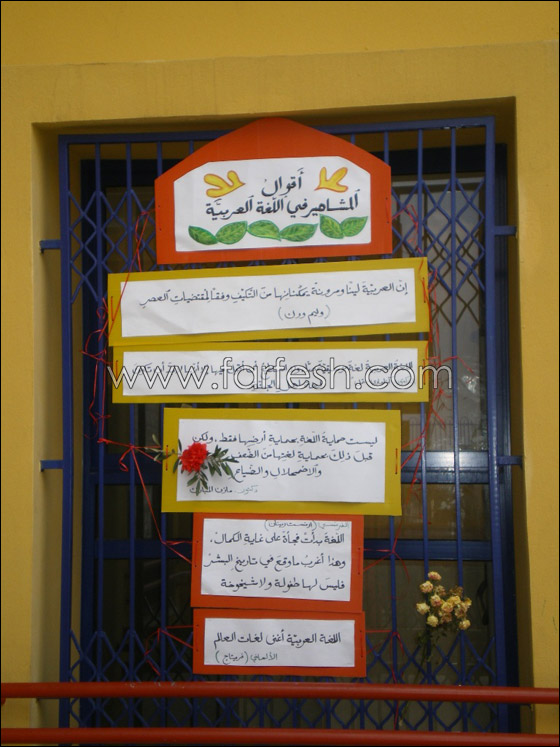 أقوال
المشاهير في اللغة العربيّة
إنّ العربيّة لينًا ومرونة يمكنانها من التكيّف وفقًا لمقتضيات العصر
(وليم ورك)
اللغة العربية لغة
www.farfesh.com
ليست حماية اللغة بحماية أرضها فقط، ولكن
قبل ذلك بحماية لغتها من الضعف
والاضمحلال والضياع
دكتور مازن المبارك
الفرنسي (ارنست رينان)
اللغة بدأت فجأة على غاية الكمال،
وهذا أغرب ما وقع في تاريخ البشر
فليس لها طفولة ولا شيخوخة
اللغة العربيّة أغنى لغات العالم
الألماني (فريتاج)